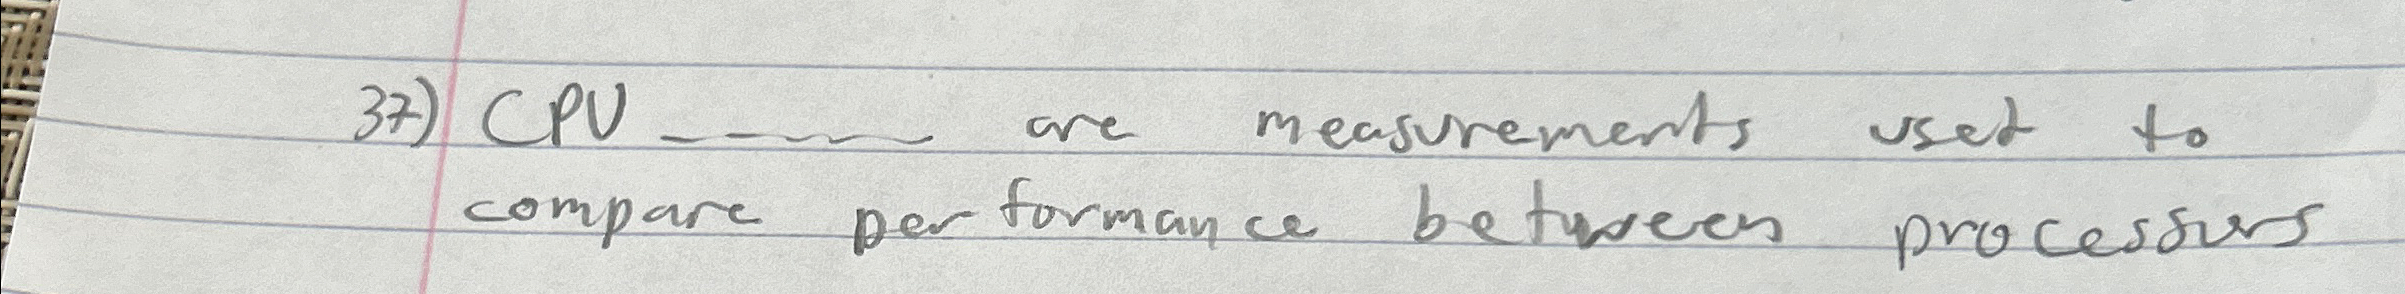 37) CPU _____ are measurements used to
compare performance between processors